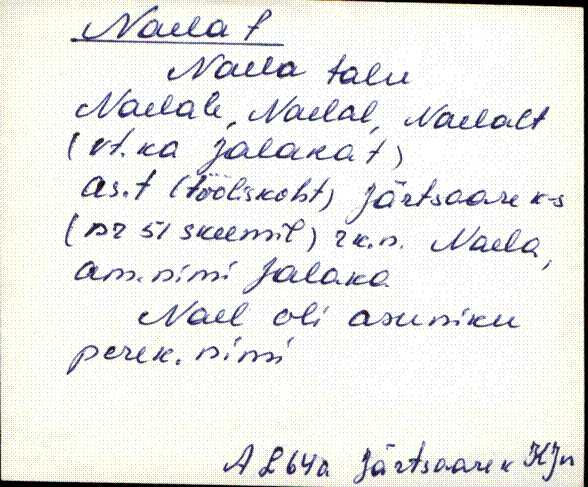 Naela t
Naela talu
Naelale, Naelal, Naelalt
(vt. ka Jalaka t)
as.t (tööliskoht) Järtsaare k-s
(nr 51 skeemil) rk.n. Naela,
am. nimi Jalaka
Nael oli asuniku
perek. nimi
Järtsaare k